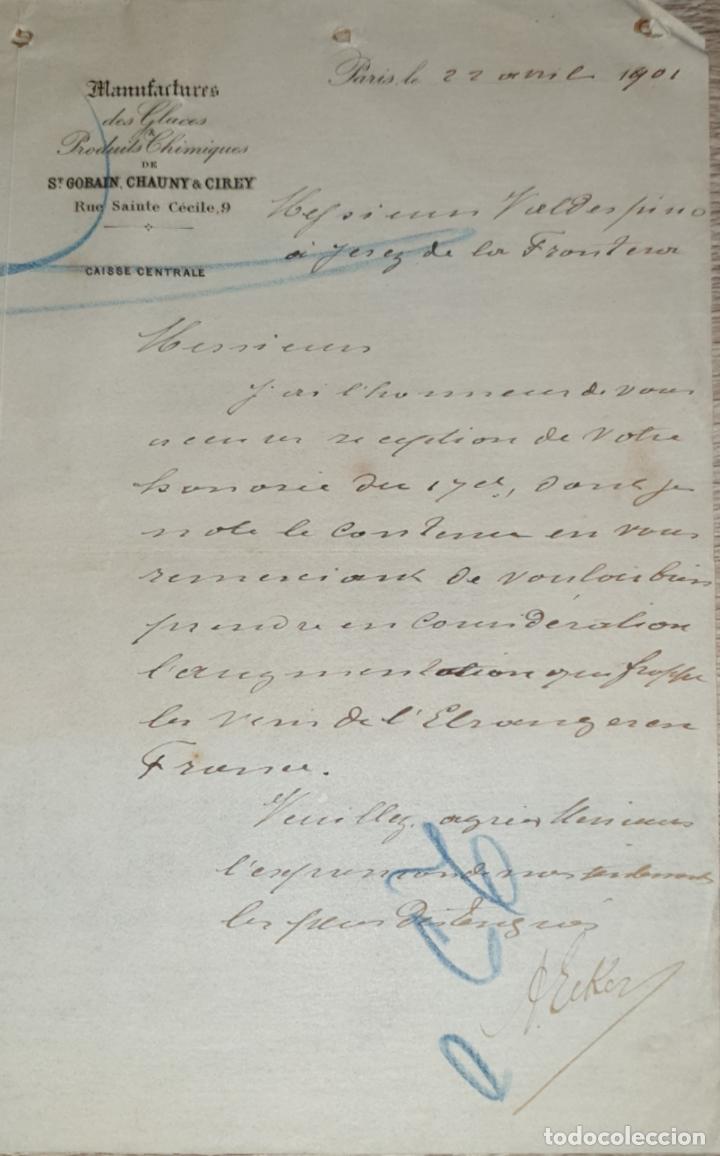 Manufactures
des Glaces
&
Produits Chimiques
DE
St GOBAIN, CHAUNY & CIREY
Rue Sainte Cécile, 9
CAISSE CENTRALE
Paris, le 22 avril 1901
Messieurs Valdespino
à Jerez de la Frontera
Messieurs
J'ai l'honneur de vous
accuser reception de votre
honorée du 17 ct, dont je
note le contenu en vous
remerciant de vouloir bien
prendre en considération
l'augmentation qui frappe
les vins de l'Etranger en
France.
Veuillez agréer Messieurs
l'expression de mes sentiments
les plus distingués
A. Ecker
todocoleccion